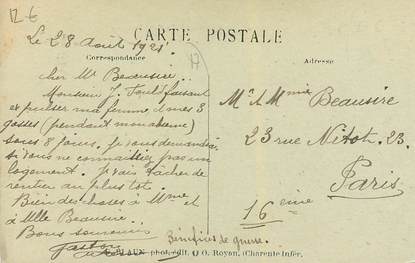 12 €
CARTE POSTALE
Le 28 Août 1921.
17
Correspondance
Adresse
Cher Mr Beausire..
Monsieur J. faisant
expulser ma femme, et mes 3
gosses (pendant mon absence)
sous 8 jours. Je vous demanderai
si vous ne connaîtriez pas un
logement. Je vais tâcher de
rentrer au plus tôt.
Bien de choses à Mme et
à Mlle Beausire..
Bons souvenirs
Gaston
Mr & Mme Beausire
23 rue Nitot. 23.
Paris
16 ème
Bénéfices de guerre.
phot. édit. O O. Royan, (Charente Infér.